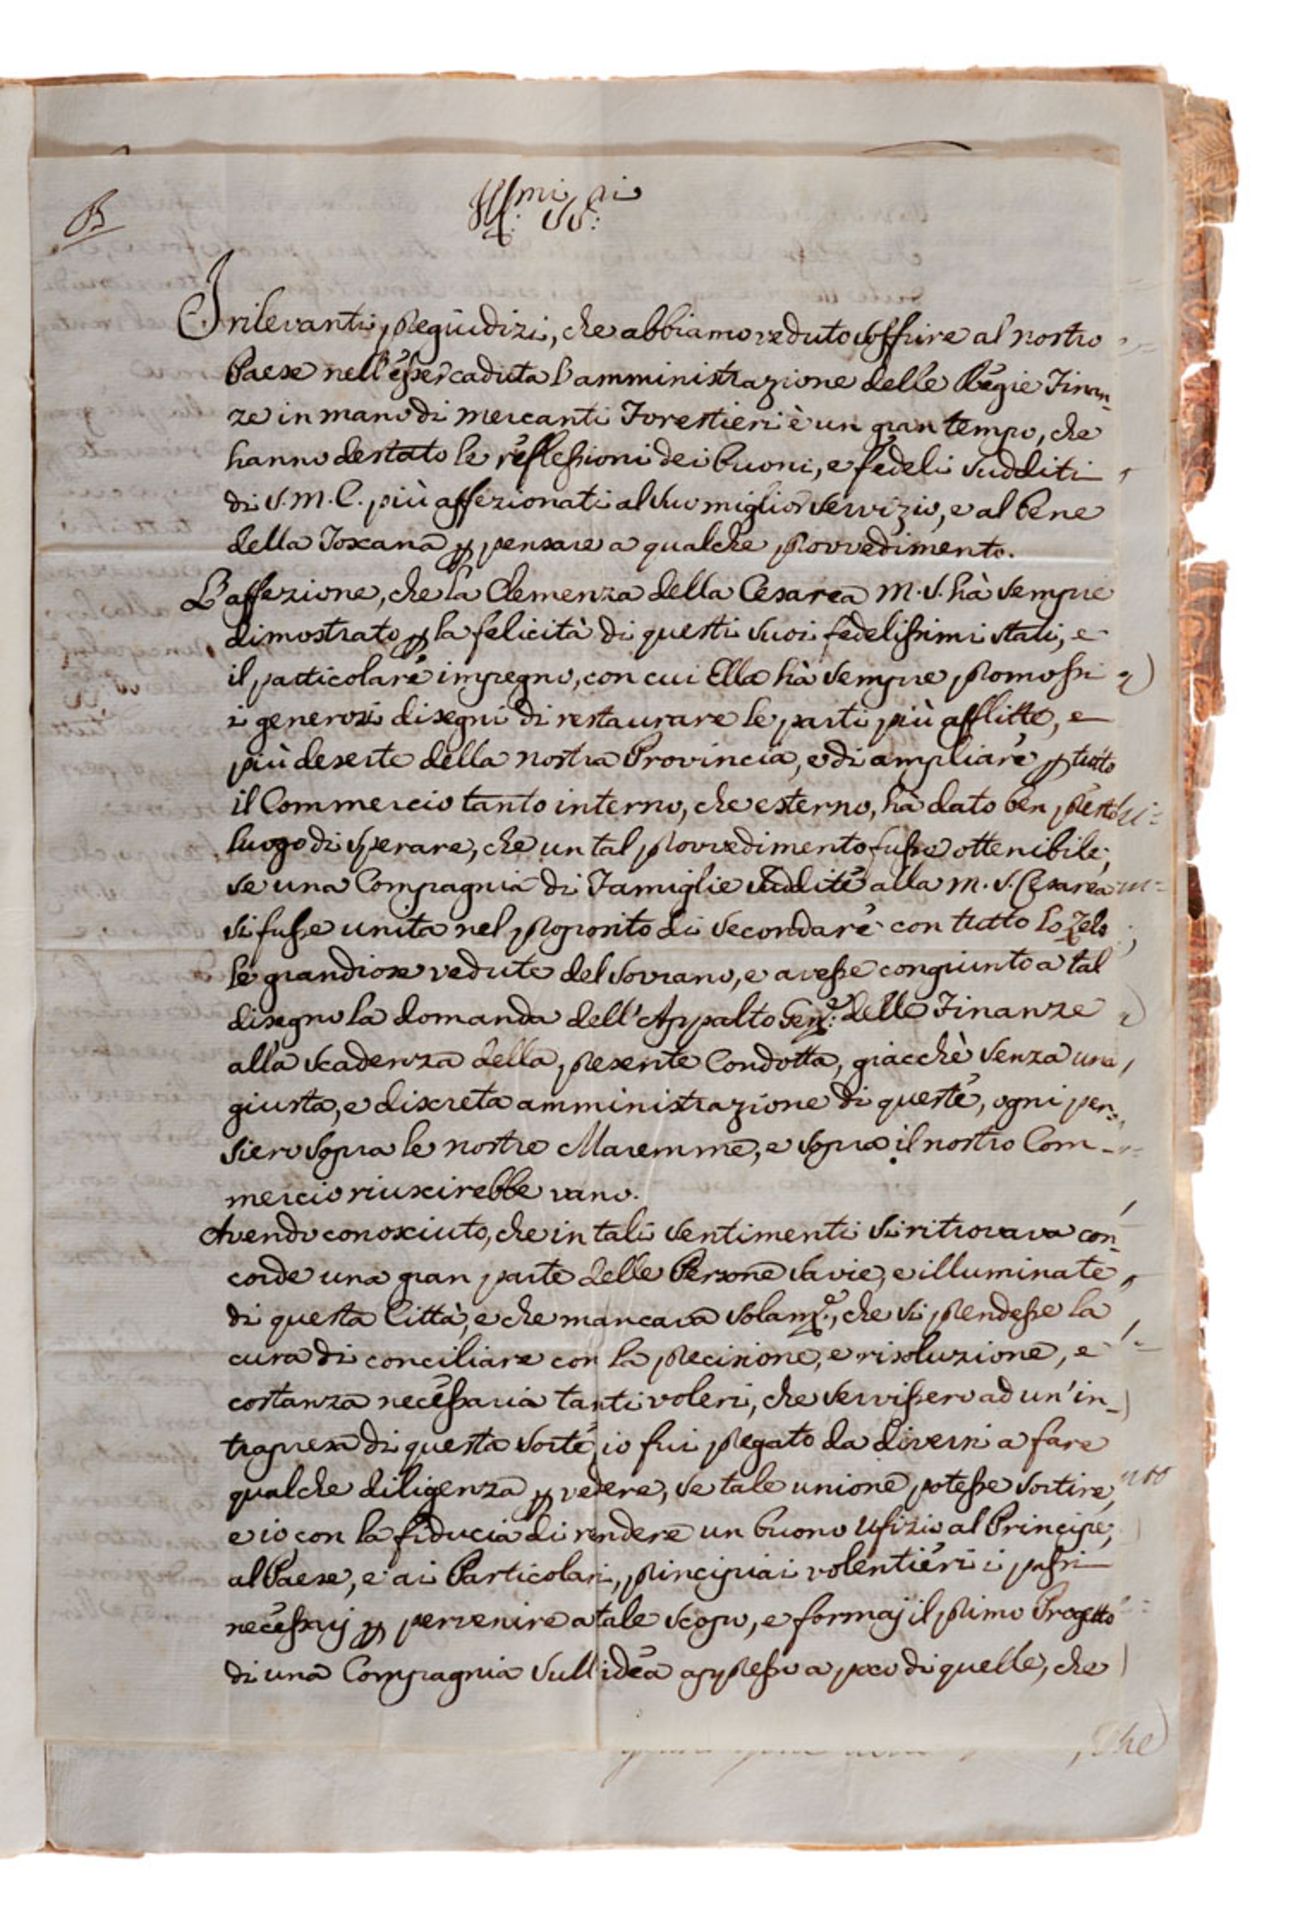 B
Ill:mi SS:ri
I rilevanti pregiudizi, che abbiamo veduto soffrire al nostro
Paese nell'esser caduta l'amministrazione delle Regie Finan-
ze in mano di Mercanti Forestieri è un gran tempo, che
hanno destato le reflessioni dei buoni, e fedeli sudditi
di S. M. C. più affezionati al suo miglior servizio, e al bene
della Toscana p pensare a qualche provvedimento.
L'affezione, che la Clemenza della Cesarea M. S. hà sempre
dimostrato p la felicità di questi suoi fedelissimi stati, e
il particolare impegno, con cui Ella hà sempre promossi
i generosi disegni di restaurare le parti più afflitte, e
più deserte della nostra Provincia, e di ampliare p tutto
il Commercio tanto interno, che esterno, hà dato ben presto
luogo di sperare, che un tal provvedimento fusse ottenibile,
se una Compagnia di Famiglie suddite alla M. S. Cesarea
si fusse unita nel proposito di secondare con tutto lo zelo
le grandiose vedute del Sovrano, e avesse congiunto a tal
disegno la domanda dell'Appalto Gen:e delle Finanze
alla scadenza della presente Condotta, giacchè senza una
giusta, e discreta amministrazione di queste, ogni pen-
siero sopra le nostre Maremme, e sopra il nostro Com-
mercio riuscirebbe vano.
Avendo conosciuto, che in tali sentimenti si ritrovava con-
corde una gran parte delle Persone savie, e illuminate
di questa Città, e che mancava solam:e, che si prendesse la
cura di conciliare con la precisione, e risoluzione, e
costanza necessaria tanti voleri, che servissero ad un'in-
trapresa di questa sorte, io fui pregato da diversi a fare
qualche diligenza p vedere, se tale unione potesse sortire,
e io con la fiducia di rendere un buono Ufizio al Principe,
al Paese, e ai Particolari, principiai volentieri i passi
necessarj p pervenire a tale scopo, e formaj il primo Progetto
di una Compagnia sull'idea appresso a poco di quelle, che